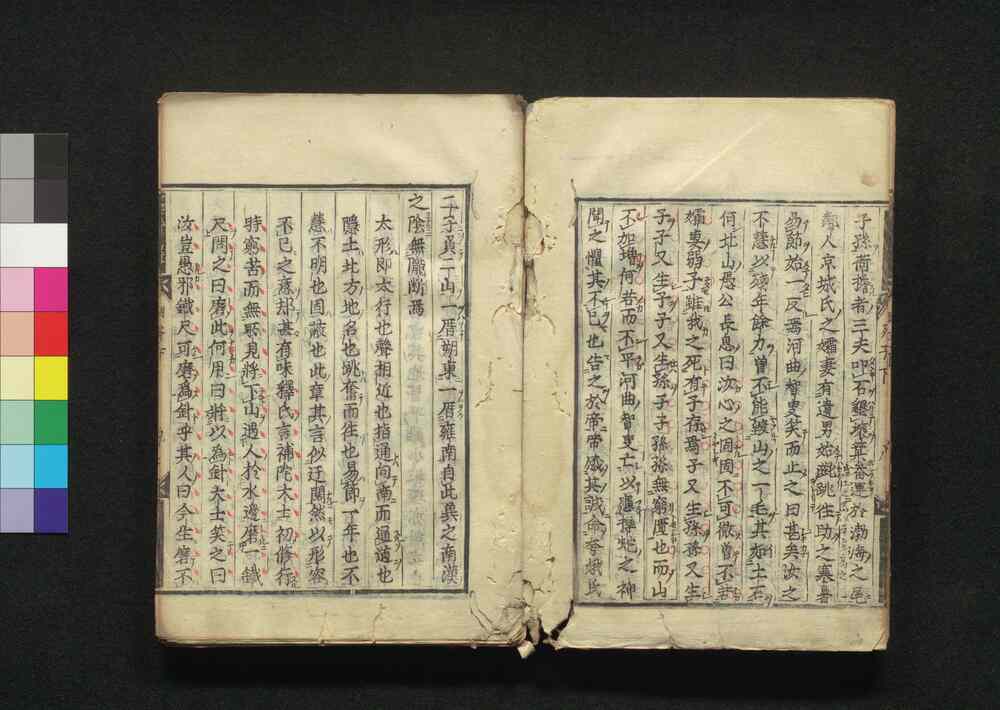 子孫荷擔者三夫叩石墾壤箕畚運於渤海之尾
鄰人京城氏之孀妻有遺男始齔跳往助之寒暑
易節始一反焉河曲智叟笑而止之曰甚矣汝之
不慧以殘年餘力曾不能毀山之一毛其如土石
何北山愚公長息曰汝心之固固不可徹曾不若
孀妻弱子雖我之死有子存焉子又生孫孫又生
子子又生子子又生孫子子孫孫無窮匱也而山
不加增何若而不平河曲智叟亡以應操蛇之神
聞之懼其不已也告之於帝帝感其誠命夸娥氏
二子負二山一厝朔東一厝雍南自此冀之南漢
之陰無隴斷焉
太形即太行也聲相近也指通向南而通道也
隱土北方地名也跳奮而往也易節一年也不
慧不明也固蔽也此章其言似迂闊然以形容
不已之意却甚有味釋氏言補陀大士初修行
時窮苦而無所見將下山遇人於水邊磨一鐵
尺問之曰磨此何用曰將以為針大士笑之曰
汝豈愚邪鐵尺可磨為針乎其人曰今生磨不